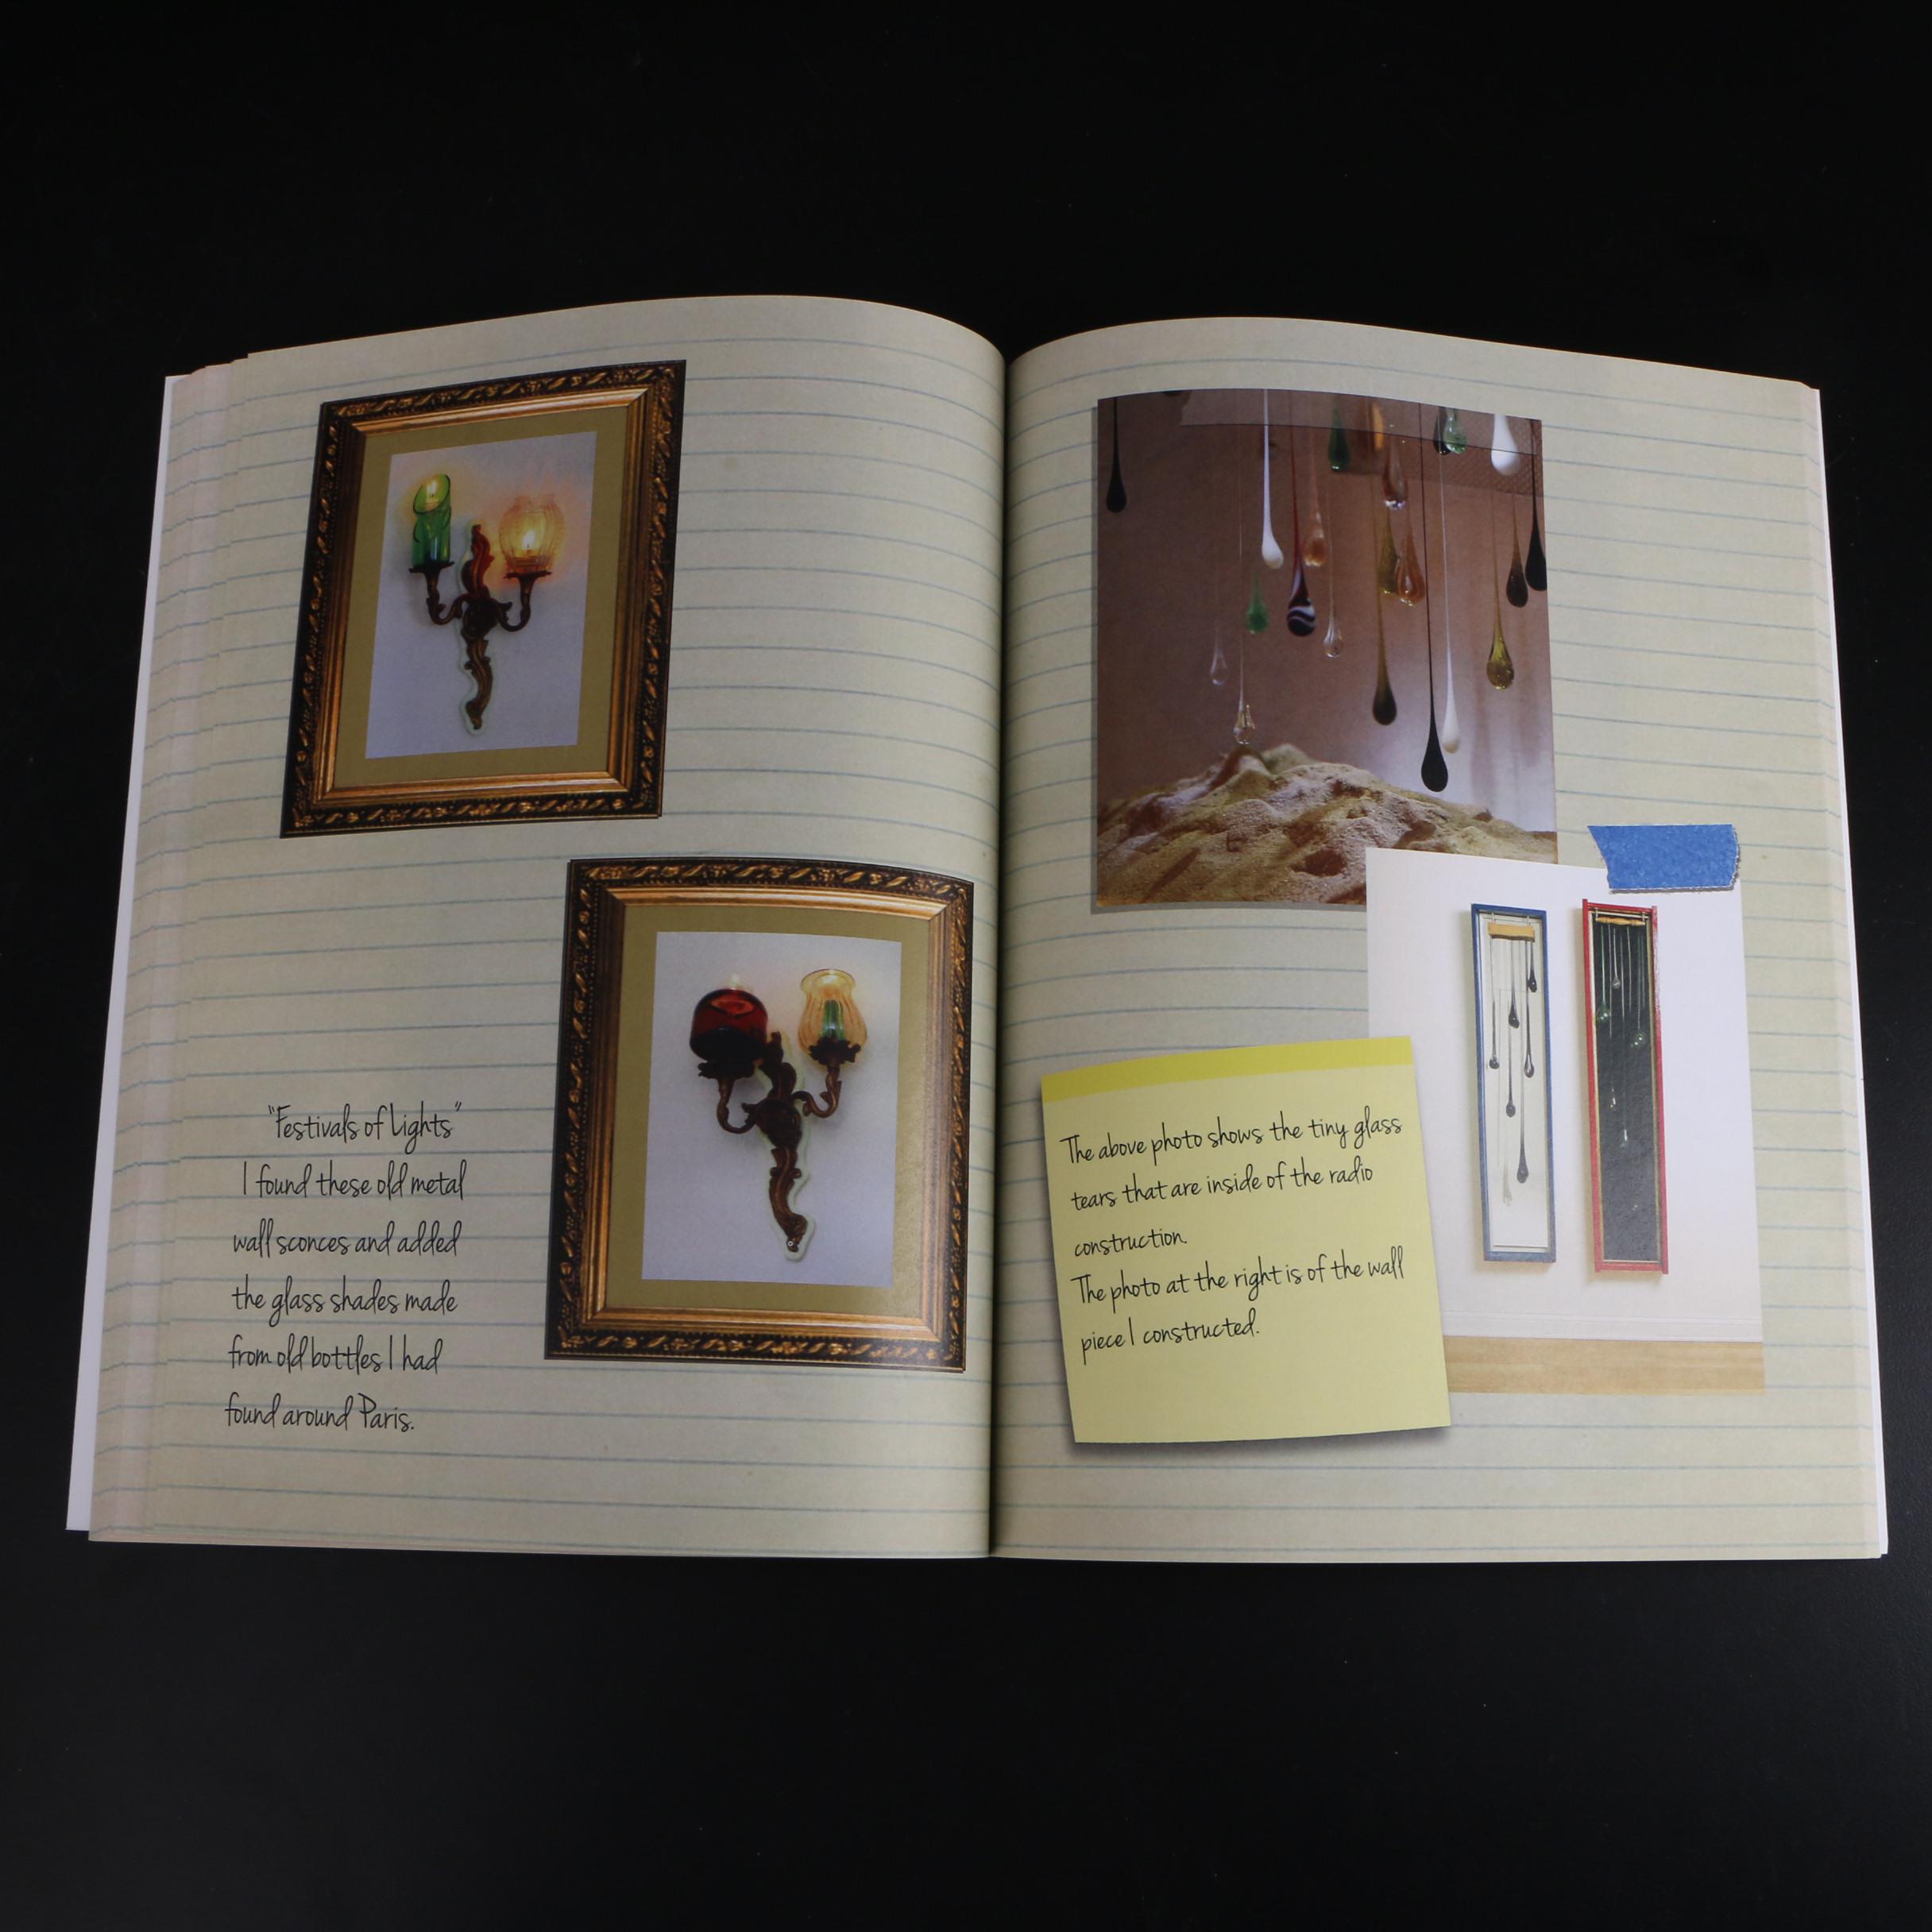 "Festivals of Lights"
I found these old metal
wall sconces and added
the glass shades made
from old bottles I had
found around Paris.
The above photo shows the tiny glass
tears that are inside of the radio
construction.
The photo at the right is of the wall
piece I constructed.